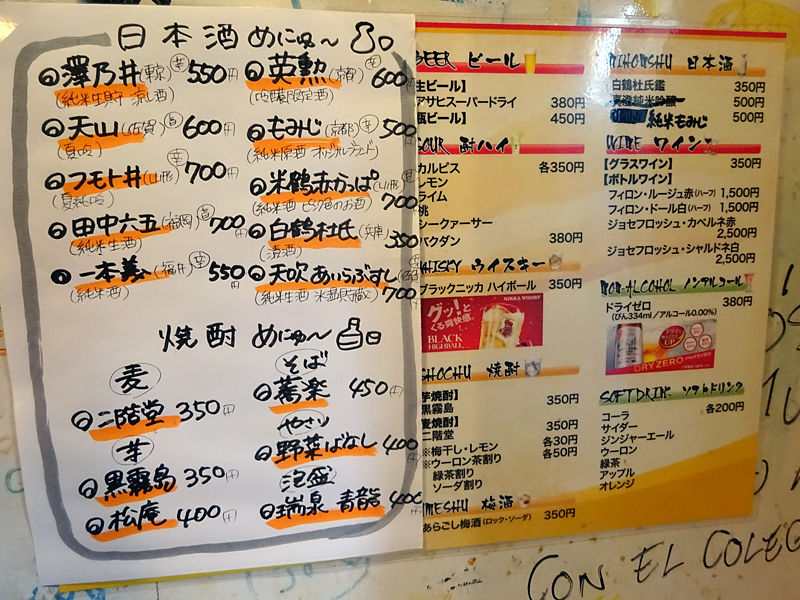 日本酒めにゅ〜
澤乃井(東京)辛550円
(純米生貯涼酒)
天山(佐賀)600円
(夏吟)
フモト井(山形)辛700円
(夏純吟)
田中六五(福岡)700円
(純米生酒)
一本義(福井)辛550円
(純米酒)
英勲(京都)辛600円
(吟醸限定酒)
もみじ(京都)辛500
(純米原酒 オリジナルブランド)
米鶴赤かっぱ(山形)
700円
白鶴杜氏(兵庫)350
(清酒)
天吹あいらぶすし
700円
焼酎めにゅ〜
麦
二階堂 350円
芋
黒霧島 350円
松庵 400円
そば
蕎楽 450円
やさい
野菜ばなし 400円
泡盛
瑞泉 青龍 400
BEER ビール
生ビール】
アサヒスーパードライ 380円
瓶ビール】 450円
SOUR 酎ハイ
カルピス 各350円
レモン
ライム
桃
シークァーサー
バクダン 380円
WHISKY ウイスキー
ブラックニッカ ハイボール 350円
グッ!と
くる爽快感。
NIKKA WHISKY
BLACK
HIGHBALL
SHOCHU 焼酎
芋焼酎】 350円
黒霧島
麦焼酎】 350円
二階堂
※梅干し・レモン 各30円
※ウーロン茶割り 各50円
緑茶割り
ソーダ割り
UMESHU 梅酒
あらごし梅酒(ロック・ソーダ) 350円
NIHONSHU 日本酒
白鶴杜氏鑑 350円
500円
純米もみじ 500円
WINE ワイン
【グラスワイン】 350円
【ボトルワイン】
フィロン・ルージュ赤(ハーフ) 1,500円
フィロン・ドール白(ハーフ) 1,500円
ジョセフロッシュ・カベルネ赤
2,500円
ジョセフロッシュ・シャルドネ白
2,500円
NON-ALCOHOL ノンアルコール
ドライゼロ 380円
(びん334ml/アルコール0.00%)
DRY ZERO
SOFT DRINK ソフトドリンク
コーラ 各200円
サイダー
ジンジャーエール
ウーロン
緑茶
アップル
オレンジ
CON EL COLEG